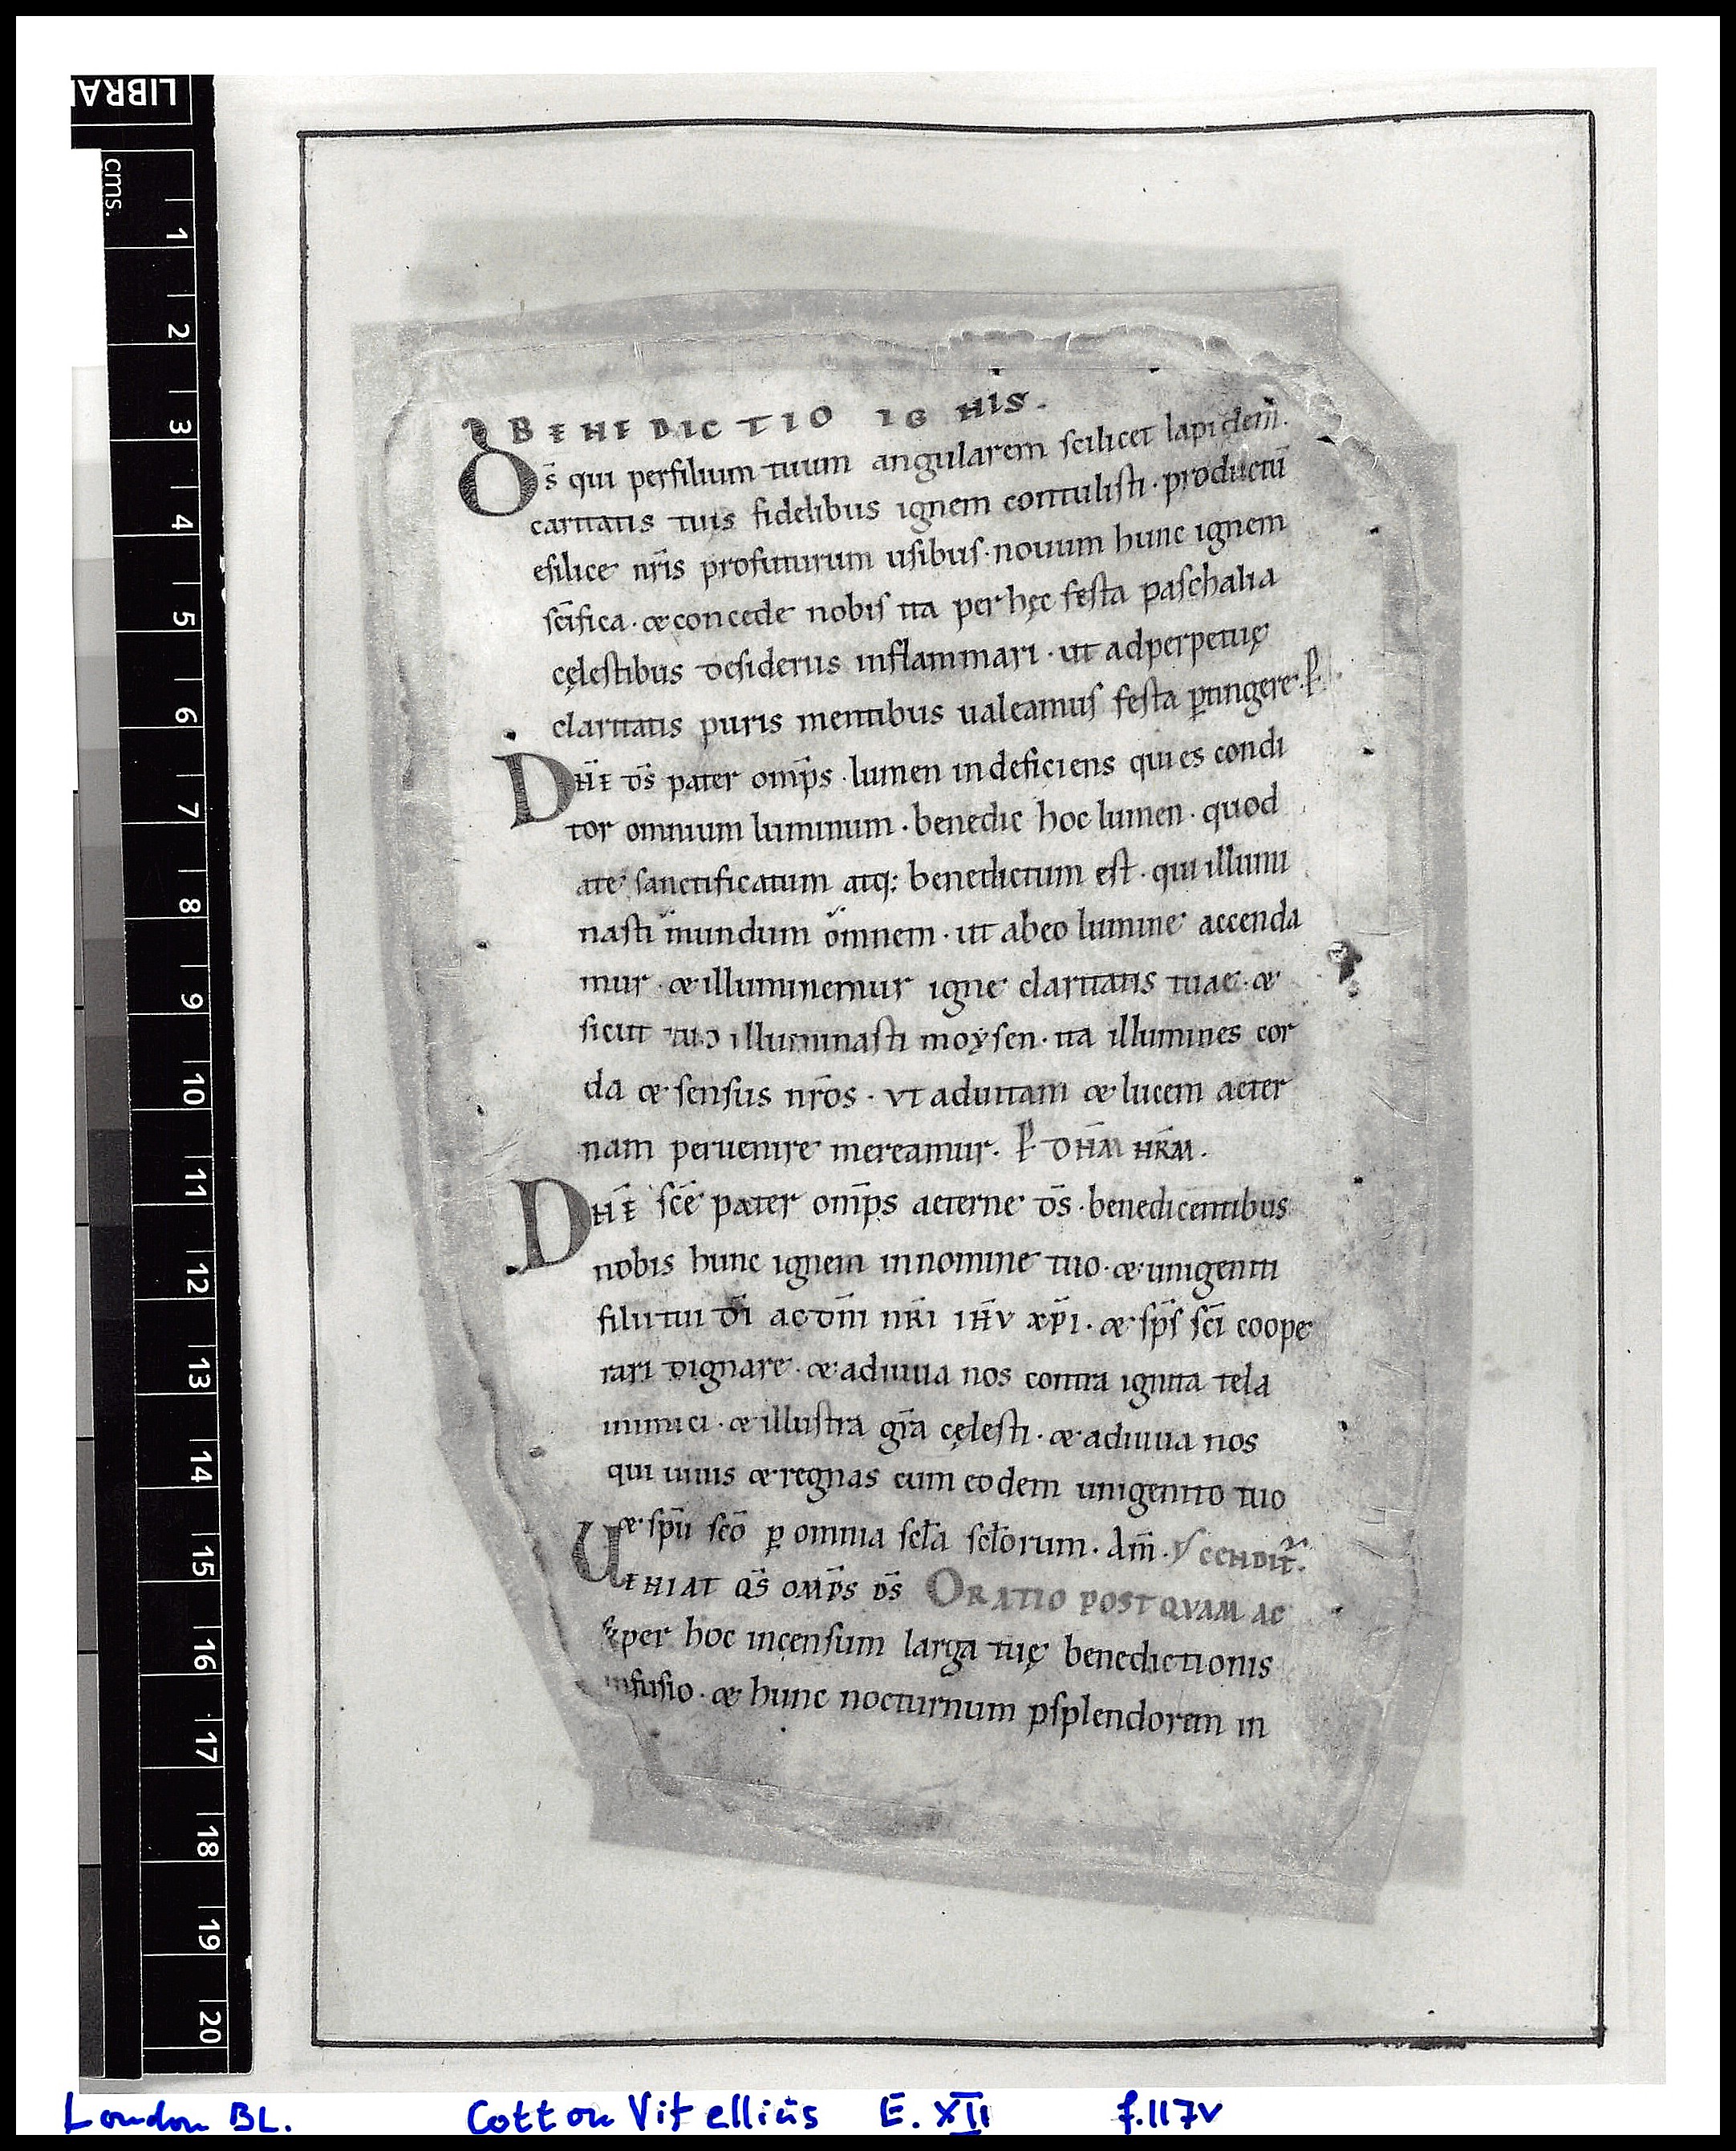 LIBRA
cms.
1
2
3
4
5
6
7
8
9
10
11
12
13
14
15
16
17
18
19
20
BENEDICTIO IGNIS.
Ds̄ qui perfilium tuum angularem scilicet lapidem.
caritatis tuis fidelibus ignem contulisti · productū
esilice nr̄is profuturum usibus · nouum hunc ignem
sc̄ifica · & concede nobis ita per hęc festa paschalia
cęlestibus desideriis inflammari · ut adperpetuę
claritatis puris mentibus ualeamus festa ꝑtingere · P̄
DN̄E ds̄ pater omp̄s · lumen indeficiens qui es condi
tor omnium luminum · benedic hoc lumen · quod
ate sanctificatum atq; benedictum est · qui illumi
nasti mundum omnem · ut abeo lumine accenda
mur · & illuminemur igne claritatis tuae · &
sicut tuo illuminasti moysen · ita illumines cor
da & sensus nr̄os · ut aduitam & lucem aeter
nam peruenire mereamur. P̄ DN̄M NR̄M.
DN̄E sc̄e pater omp̄s aeterne ds̄ · benedicentibus
nobis hunc ignem innomine tuo · & unigeniti
filii tui dī ac dn̄i nr̄i ih̄u xp̄i · & sp̄s sc̄i coope
rari dignare · & adiuua nos contra ignita tela
inimici · & illustra gr̄a cęlesti · & adiuua nos
qui uiuis & regnas cum eodem unigenito tuo
& sp̄u sc̄o ꝑ omnia scl̄a scl̄orum · Am̄ · CENDIT̄.
UENIAT QS̄ OMP̄S DS̄ ORATIO POSTQUAM AC
super hoc incensum larga tuę benedictionis
infusio · & hunc nocturnum psplendorem in
London BL. Cotton Vitellius E. XII f.117v